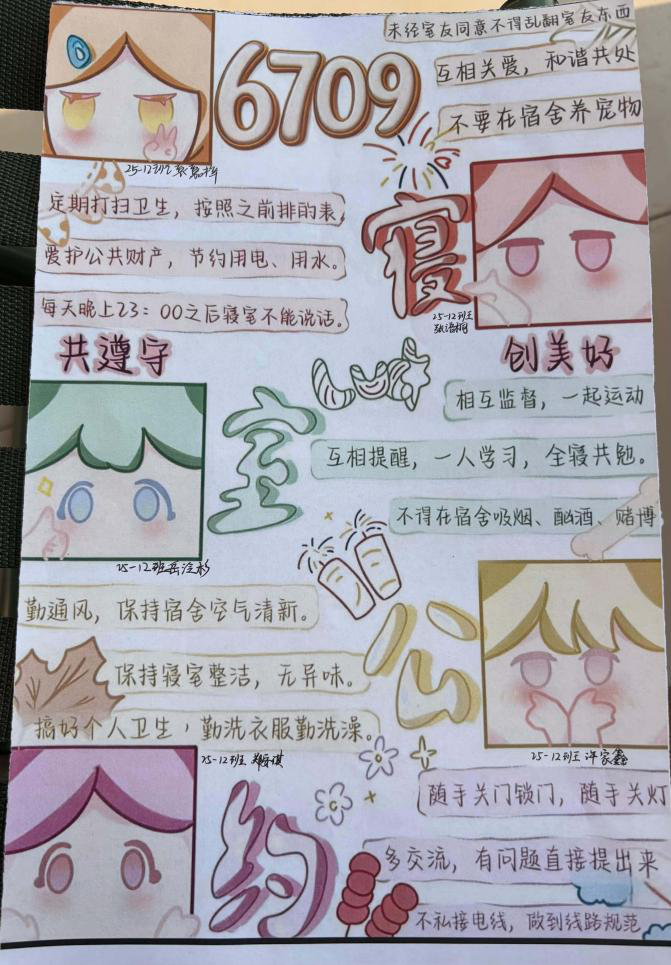 6709
未经室友同意不得乱翻室友东西
互相关爱，和谐共处
不要在宿舍养宠物
25-12班
定期打扫卫生，按照之前排的表，
爱护公共财产，节约用电、用水。
每天晚上23：00之后寝室不能说话。
寝
25-12班
共遵守
创美好
室
相互监督，一起运动
互相提醒，一人学习，全寝共勉。
不得在宿舍吸烟、酗酒、赌博
25-12班
勤通风，保持宿舍空气清新。
保持寝室整洁，无异味。
搞好个人卫生，勤洗衣服勤洗澡。
公
25-12班
25-12班 许家鑫
约
随手关门锁门，随手关灯
多交流，有问题直接提出来
不私接电线，做到线路规范